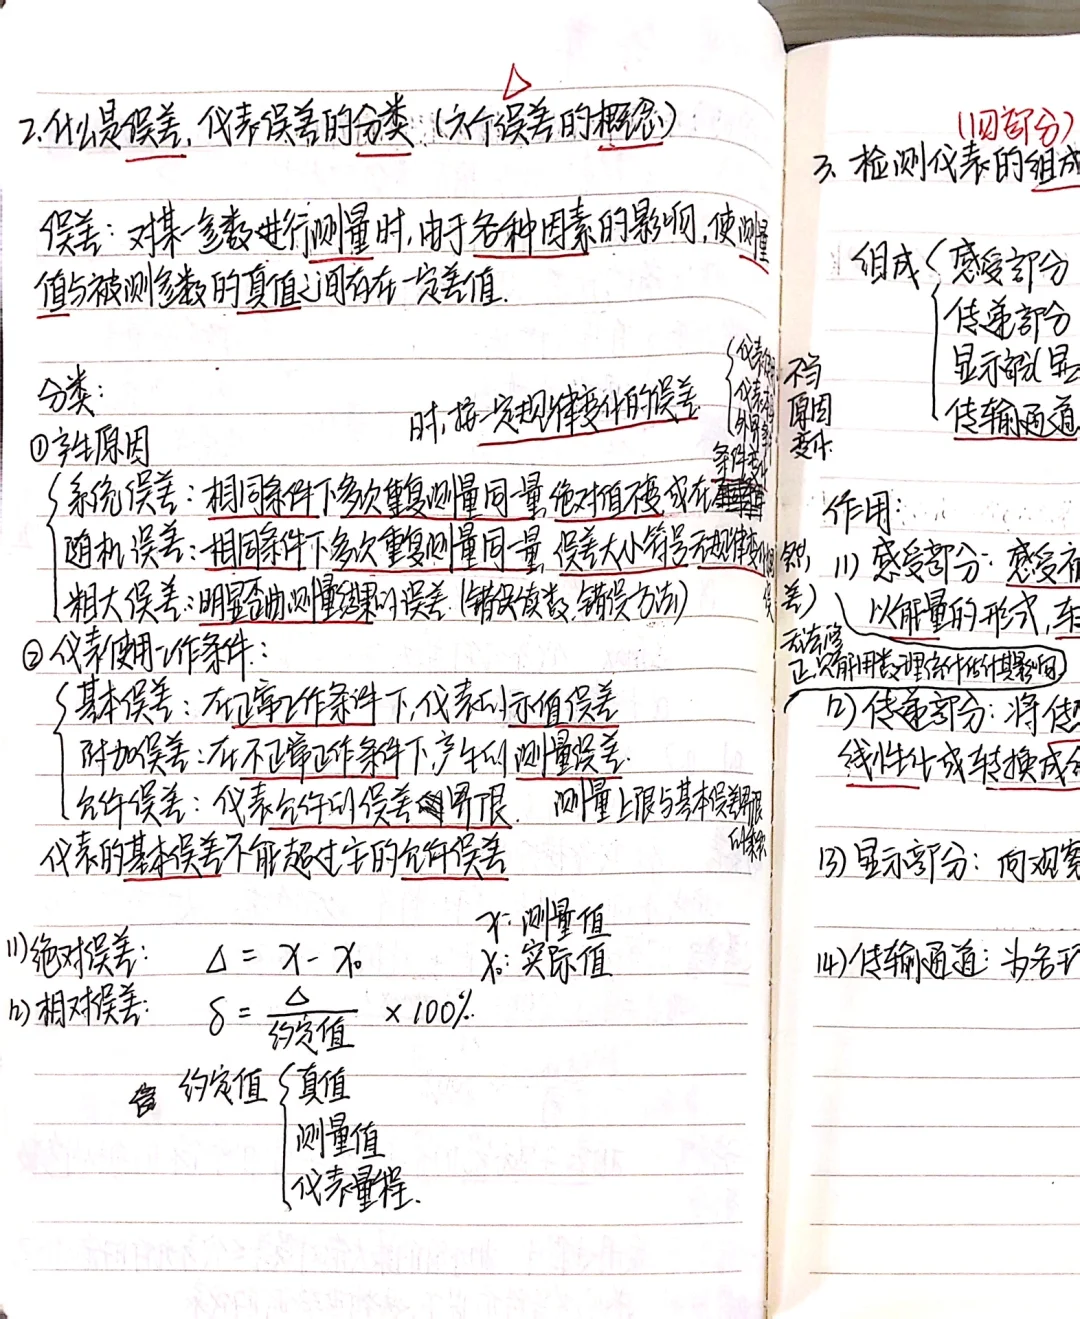 2.什么是误差,仪表误差的分类:(六个误差的概念)
误差:对某一参数进行测量时,由于各种因素的影响,使测量
值与被测参数的真值之间存在一定差值.
分类:
时,按一定规律变化的误差
①产生原因
系统误差:相同条件下多次重复测量同一量,绝对值不变或在
条件变化
随机误差:相同条件下多次重复测量同一量,误差大小符号无规律变化
粗大误差:明显歪曲测量结果的误差(错误读数,错误方法)
不当
原因
变化
②仪表使用工作条件:
基本误差:在正常工作条件下,仪表的示值误差
附加误差:在不正常工作条件下,产生的测量误差.
允许误差:仪表允许的误差界限. 测量上限与基本误差界限
的乘积
仪表的基本误差不能超过它的允许误差
无法修
正,只能用数理统计估计其影响
x:测量值
x₀:实际值
(1)绝对误差: Δ = x - x₀
(2)相对误差: δ = Δ/约定值 × 100%.
约定值
真值
测量值
仪表量程.
(四部分)
3. 检测仪表的组成
组成
感受部分
传递部分
显示部分
传输通道
作用:
(1) 感受部分:感受
以能量的形式,
(2)传递部分:将
线性化或转换成
(3)显示部分:向观察
(4)传输通道:为各